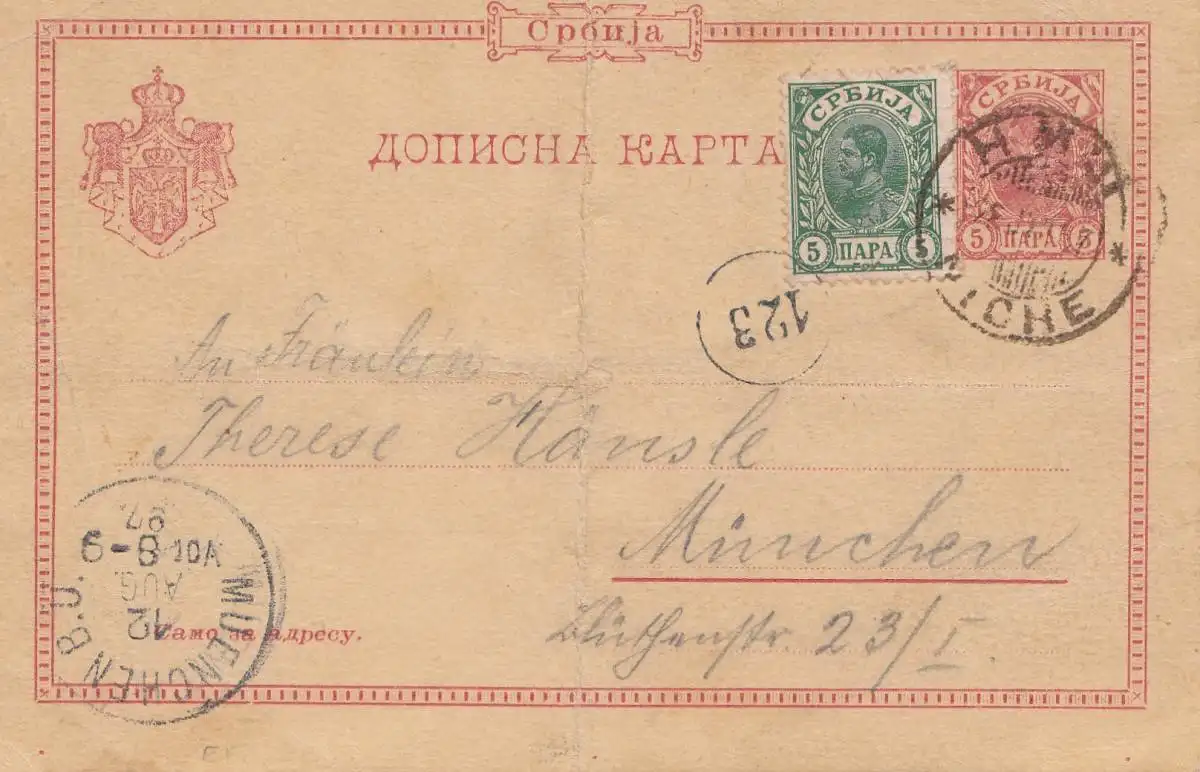 Србија
ДОПИСНА КАРТА
СРБИЈА
5 ПАРА 5
СРБИЈА
5 ПАРА 5
НИШ
NICHE
123
An Fräulein
Therese Hänsle
München
Blüthenstr. 23/I
Само за адресу.
MUENCHEN B.U.
12
AUG.
VOR 8-9
97